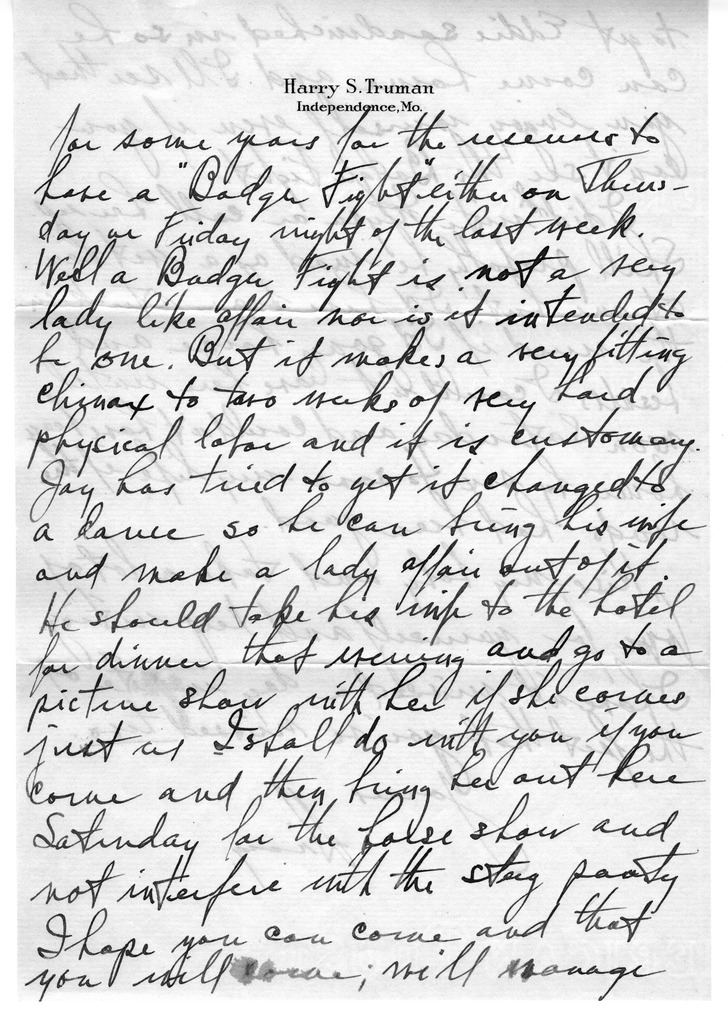 Harry S. Truman
Independence, Mo.
for some years for the reserves to
have a "Badger Fight" either on Thurs-
day or Friday night of the last week.
Well a Badger Fight is not a very
lady like affair nor is it intended to
be one. But it makes a very fitting
climax to two weeks of very hard
physical labor and it is customary.
Jay has tried to get it changed to
a dance so he can bring his wife
and make a lady affair out of it.
He should take his wife to the hotel
for dinner that evening and go to a
picture show with her if she comes
just as I shall do with you if you
come and then bring her out here
Saturday for the horse show and
not interfere with the stag party
I hope you can come and that
you will; will manage